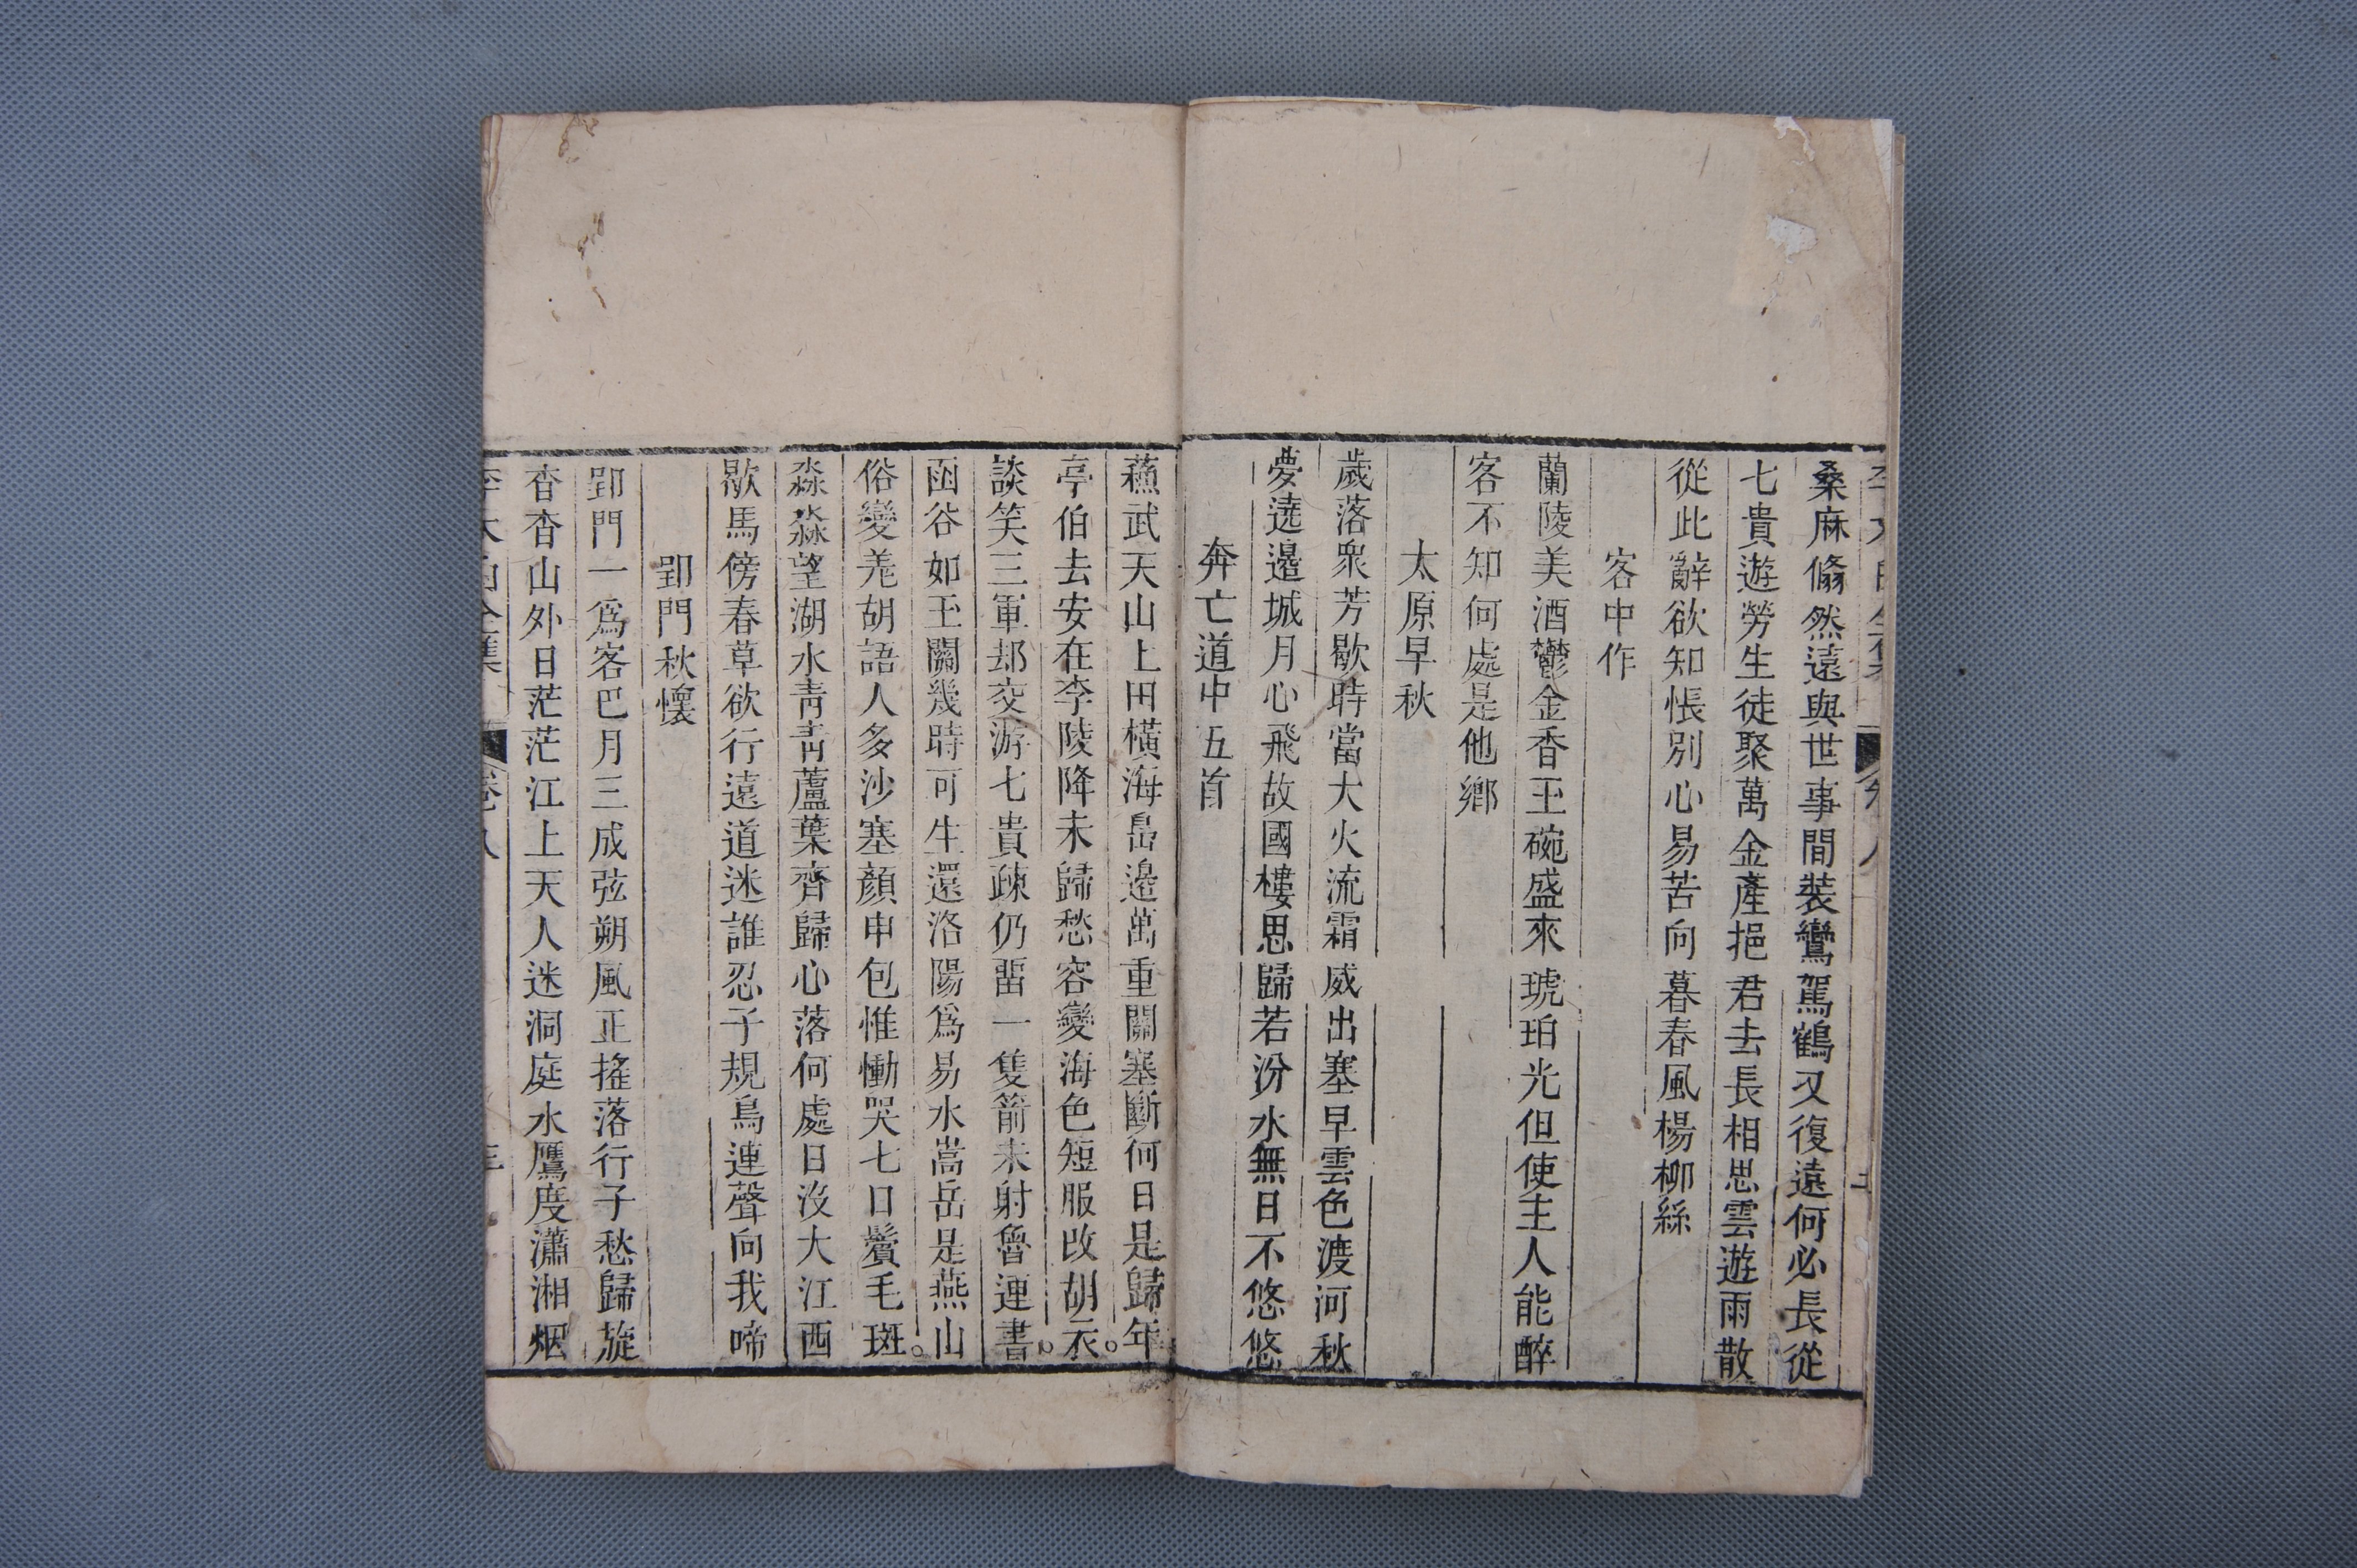 桑麻翛然遠與世事間裝鸞駕鶴又復遠何必長從
七貴遊勞生徒聚萬金產挹君去長相思雲遊雨散
從此辭欲知悵別心易苦向暮春風楊柳絲
客中作
蘭陵美酒鬱金香玉碗盛來琥珀光但使主人能醉
客不知何處是他鄉
太原早秋
歲落衆芳歇時當大火流霜威出塞早雲色渡河秋
夢遶邊城月心飛故國樓思歸若汾水無日不悠悠
奔亡道中五首
蘓武天山上田橫海島邊萬重關塞斷何日是歸年
亭伯去安在李陵降未歸愁容變海色短服改胡衣
談笑三軍却交游七貴疎仍畱一隻箭未射魯連書
函谷如玉關幾時可生還洛陽爲易水嵩岳是燕山
俗變羗胡語人多沙塞顏申包惟慟哭七口鬢毛斑
淼淼望湖水靑靑蘆葉齊歸心落何處日沒大江西
歇馬傍春草欲行遠道迷誰忍子規鳥連聲向我啼
郢門秋懷
郢門一爲客巴月三成弦朔風正搖落行子愁歸旋
杳杳山外日茫茫江上天人迷洞庭水鴈度瀟湘烟
李太白全集 卷八